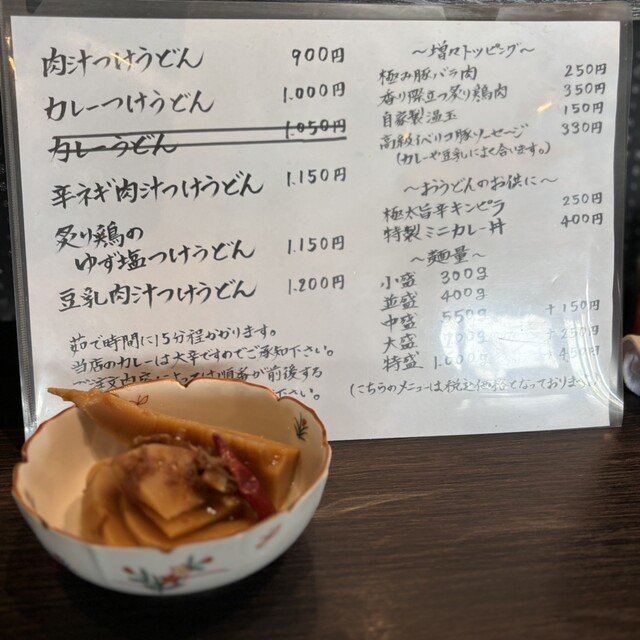 肉汁つけうどん 900円
カレーつけうどん 1.000円
カレーうどん 1.050円
辛ネギ肉汁つけうどん 1.150円
炙り鶏の
ゆず塩つけうどん 1.150円
豆乳肉汁つけうどん 1.200円
茹で時間に15分程かかります。
当店のカレーは大辛ですのでご承知下さい。
順番が前後する
下さい。
〜増々トッピング〜
極み豚バラ肉 250円
香り際立つ炙り鶏肉 350円
自家製温玉 150円
高級イベリコ豚ソーセージ 330円
(カレーや豆乳によく合います。)
〜おうどんのお供に〜
極太旨辛キンピラ 250円
特製ミニカレー丼 400円
〜麺量〜
小盛 300g
並盛 400g
中盛 550g +150円
大盛 700g
特盛 1.000g
(こちらのメニューは税込価格となっております